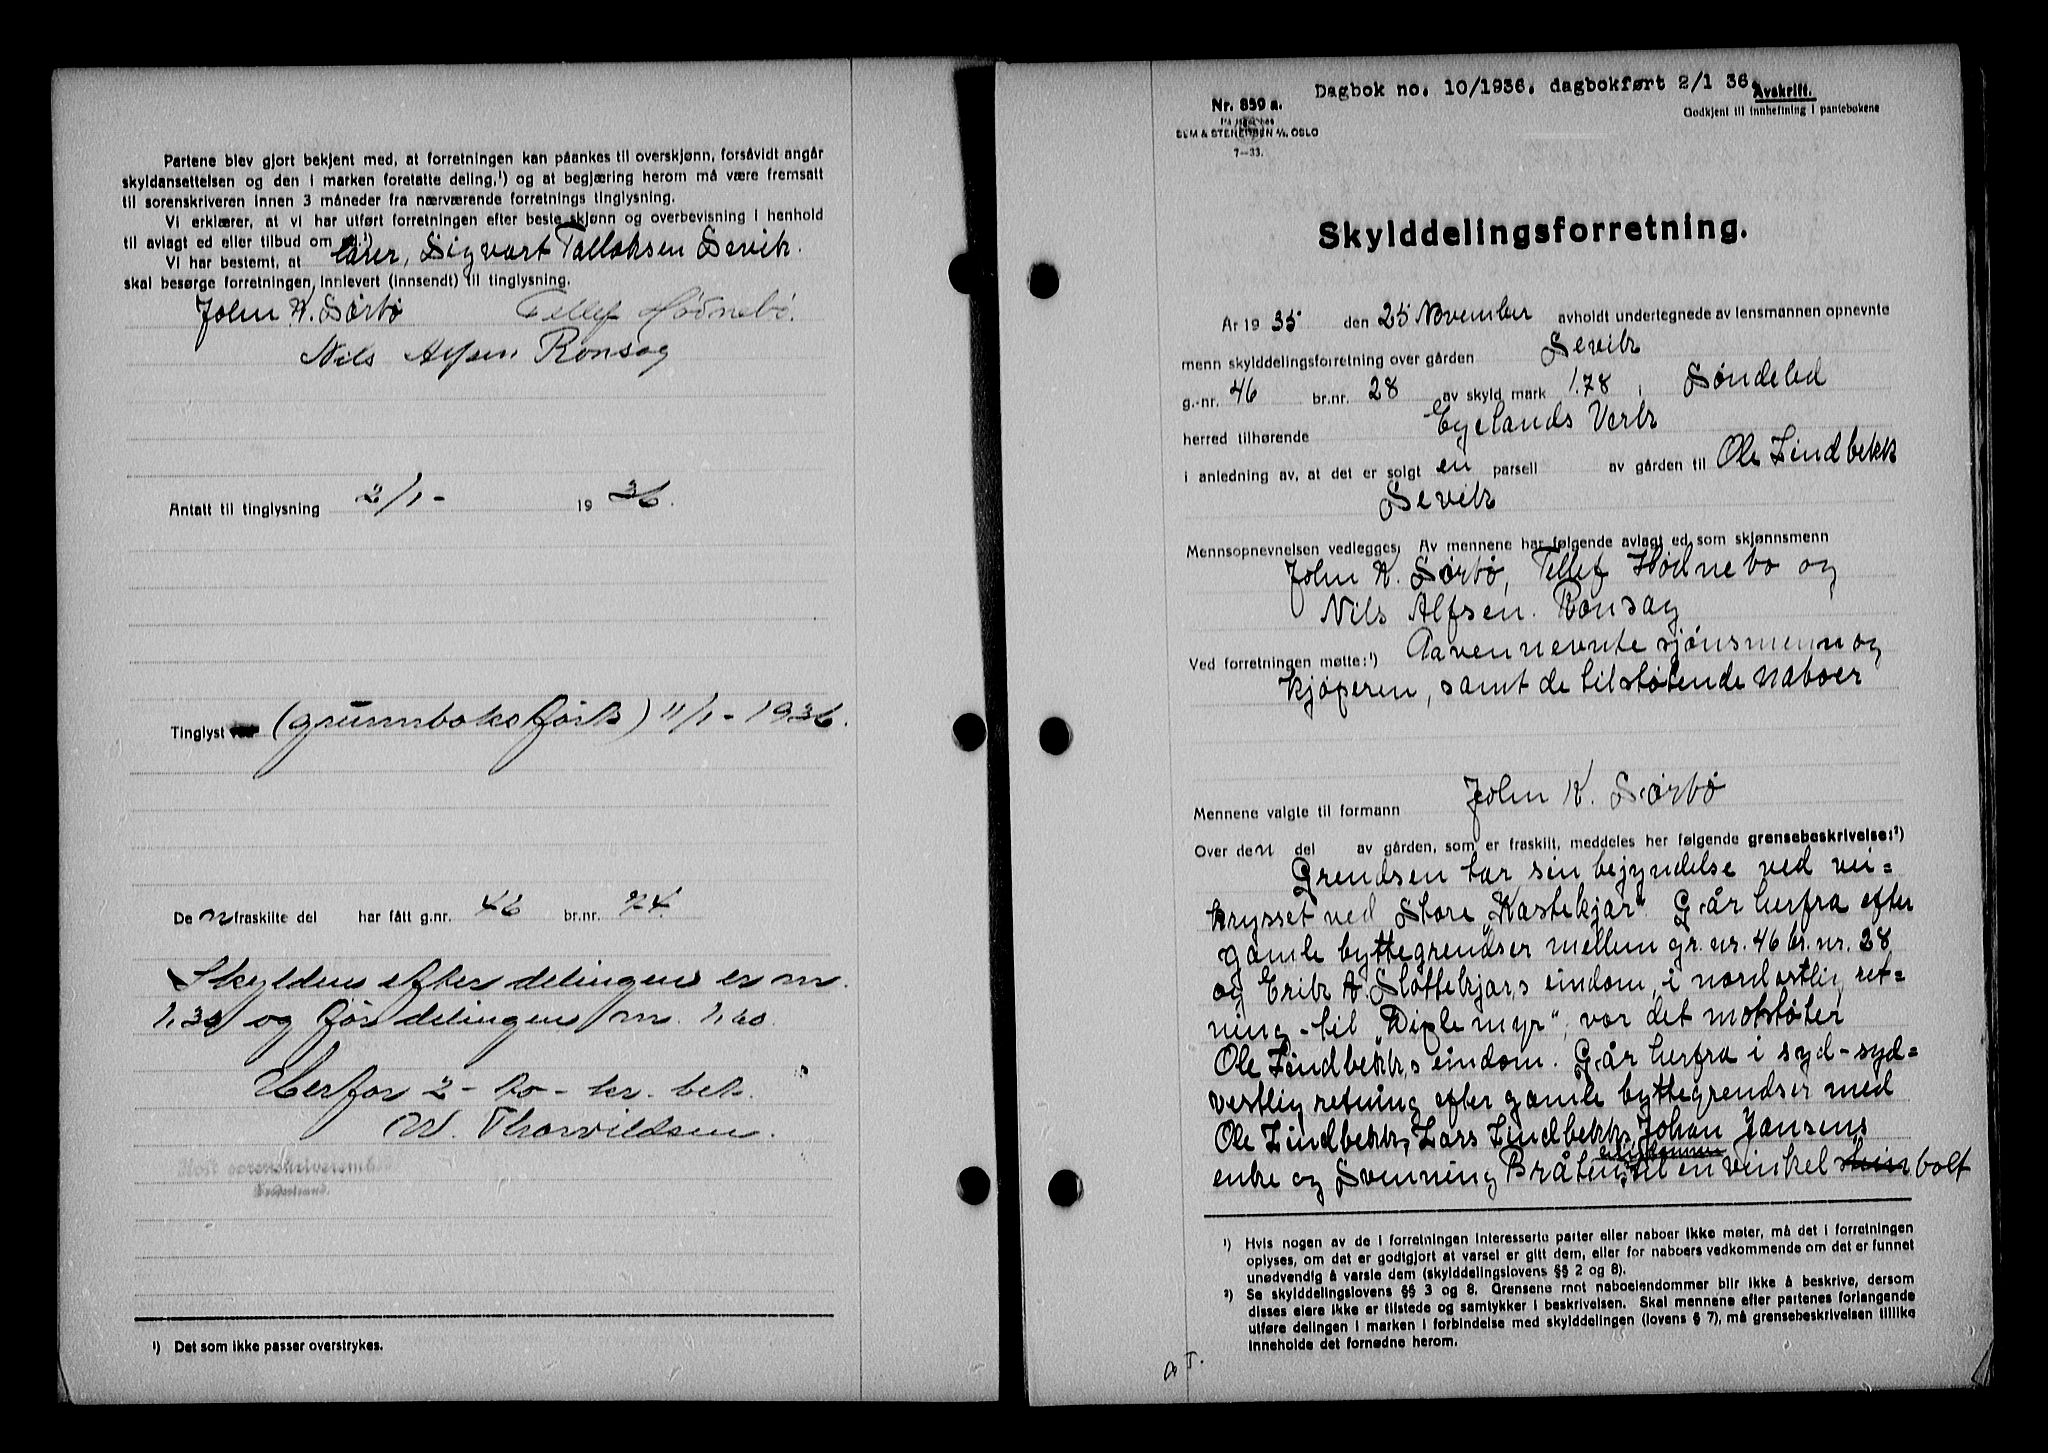 Partene blev gjort bekjent med, at forretningen kan påankes til overskjønn, forsåvidt angår
skyldansettelsen og den i marken foretatte deling,¹) og at begjæring herom må være fremsatt
til sorenskriveren innen 3 måneder fra nærværende forretnings tinglysning.
Vi erklærer, at vi har utført forretningen efter beste skjønn og overbevisning i henhold
til avlagt ed eller tilbud om ed.¹)
Vi har bestemt, at lærer, Sigvart Tallaksen Sevik.
skal besørge forretningen innlevert (innsendt) til tinglysning.
John K. Sørbø Tellef Hødnebø.
Nils Alfsen Ronsag
Antatt til tinglysning 2/1- 1936.
Tinglyst (grunnboksført) 11/1-1936.
De n fraskilte del har fått g.nr. 46 br.nr. 74.
Skylden efter delingen er m.
og før delingen m.
Herfor 2- to - kr. bet.
W. Thorvildsen.
¹) Det som ikke passer overstrykes.
Dagbok no. 10/1936. dagbokført 2/1 36.
Nr. 859 a.
Avskrift.
Godkjent til innheftning i pantebøkene
SEM & STENERSEN A/S, OSLO
7—33.
Skylddelingsforretning.
År 1935 den 25 November avholdt undertegnede av lensmannen opnevnte
menn skylddelingsforretning over gården Sevik
g.-nr. 46 br.nr. 28 av skyld mark 1.78 i Søndeled
herred tilhørende Egelands Verk
i anledning av, at det er solgt en parsell av gården til Ole Lindbekk
Sevik
Mennsopnevnelsen vedlegges. Av mennene har følgende avlagt ed som skjønnsmenn
John K. Sørbø, Tellef Hødnebø og
Nils Alfsen. Ronsag
Ved forretningen møtte:¹) Aavennevnte sjønsmenn og
kjøperen, samt de tilstøtende naboer
Mennene valgte til formann John K. Sørbø
Over den del av gården, som er fraskilt, meddeles her følgende grensebeskrivelse:²)
Grendsen tar sin begyndelse ved vei=
krysset ved Store „Kastekjær“. Går herfra efter
gamle byttegrendser mellem gr. nr. 46 br. nr. 28
og Erik A. Sløttekjærs eindom, i nordostlig ret-
ning - til „Diplemyr“, vor det motstøter
Ole Lindbekks eindom. Går herfra i syd-syd=
vestlig retning efter gamle byttegrendser med
Ole Lindbekk, Lars Lindbekk, Johan Jansens
enke og Svenning Bråten, til en vinkel bolt
¹) Hvis nogen av de i forretningen interesserte parter eller naboer ikke møter, må det i forretningen
oplyses, om det er godtgjort at varsel er gitt dem, eller for naboers vedkommende om det er funnet
unødvendig å varsle dem (skylddelingslovens §§ 2 og 8).
²) Se skylddelingslovens §§ 3 og 8. Grensene mot naboeiendommer blir ikke å beskrive, dersom
disses eiere ikke er tilstede og samtykker i beskrivelsen. Skal mennene efter partenes forlangende
utføre delingen i marken i forbindelse med skylddelingen (lovens § 7), må grensebeskrivelsen tillike
inneholde det fornødne herom.